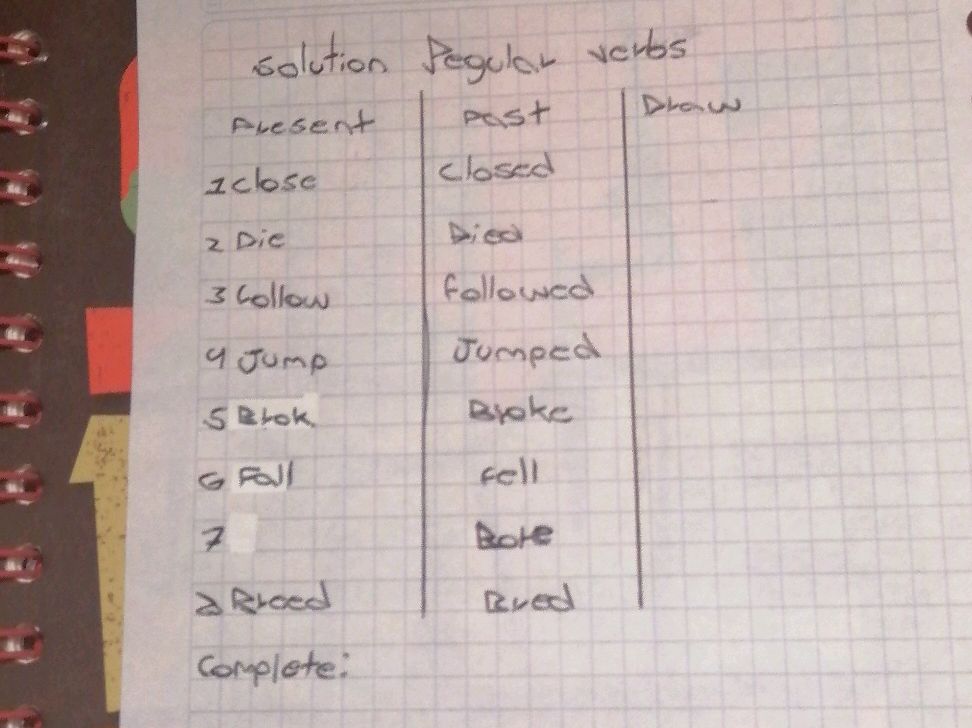 solution Regular verbs
Present Past Draw
1 close closed
2 Die Died
3 follow followed
4 Jump Jumped
5 Brok Broke
6 Fall fell
7 Bore
8 Breed Bred
Complete: